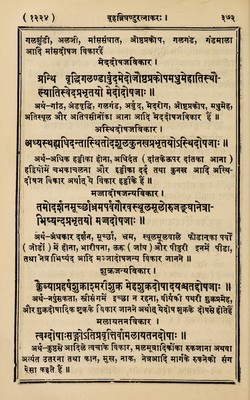 (१२२४) बृहन्निघण्टुरत्नाकरः। ३७२
गलशुंडी, अलजी, मांससंघात, ओष्ठप्रकोप, गलगंड, गंडमाला
आदि मांसदोषज विकार हैं
मेददोषजविकार।
ग्रन्थि वृद्धिगलण्डार्बुदमेदोजौष्ठप्रकोपमधुमेहातिस्थौ-
ल्यातिस्वेदप्रभृतयो मेदोदोषजाः॥
अर्थ-गांठ, अंडवृद्धि, गलगंड, अर्बुद, मेदरोग, ओष्ठप्रकोप, मधुमेह,
अतिस्थूल और अतिपसीनोंका आना आदि मेददोषज विकार हैं॥
अस्थिदोषजविकार।
अध्यस्थ्यधिदन्तास्थितोदशूलकुनखप्रभृतयोऽस्थिदोषजाः॥
अर्थ-अधिक हड्डीका होना, अधिदंत (दांतकेऊपर दांतका आना)
हड्डियोंमें चमकाचलना और हड्डीका दर्द तथा कुनख आदि अस्थि-
दोषज विकार अर्थात् ये विकार हड्डीके हैं॥
मज्जादोषजन्यविकार।
तमोदर्शनमूर्च्छाभ्रमपर्वगौरवस्थूलमूलोरुजङ्घानेत्रा-
भिष्यन्दप्रभृतयो मज्जदोषजाः॥
अर्थ-अंधकार दर्शन, मूर्च्छा, भ्रम, स्थूलमूलवाले फोडाकापर्वों
(जोडों) में होना, भारीपना, ऊरू (जांघ) और पीडुरी इनमें पीडा हो,
तथा नेत्राभिष्यंद आदि मज्जादोषजन्य विकार जानने॥
शुक्रजन्यविकार।
क्लैब्याप्रहर्षशुक्राश्मरीशुक्रमेहशुक्रदोषादयश्चतद्दोषजाः।
अर्थ-नपुंसकता, स्त्रीसंगमें इच्छा न रहना, वीर्यकी पथरी शुक्रप्रमेह,
और शुक्रदोषादिक शुक्रके विकार जानने अर्थात् येदोष शुक्रके दोषसे होतेहैं
मलायतनविकार।
त्वग्दोषाःसङ्गोऽतिप्रवृत्तिर्वामलायतनदोषाः।
अर्थ-कुष्ठसे आदिले त्वचाके विकार, मलमूत्रादिकोंका रुकना अथवा
अत्यंत उतरना तथा कान, मुख, नाक, नेत्रआदि मार्गके रुकनेकी संग
ऐसा कहते हैं॥